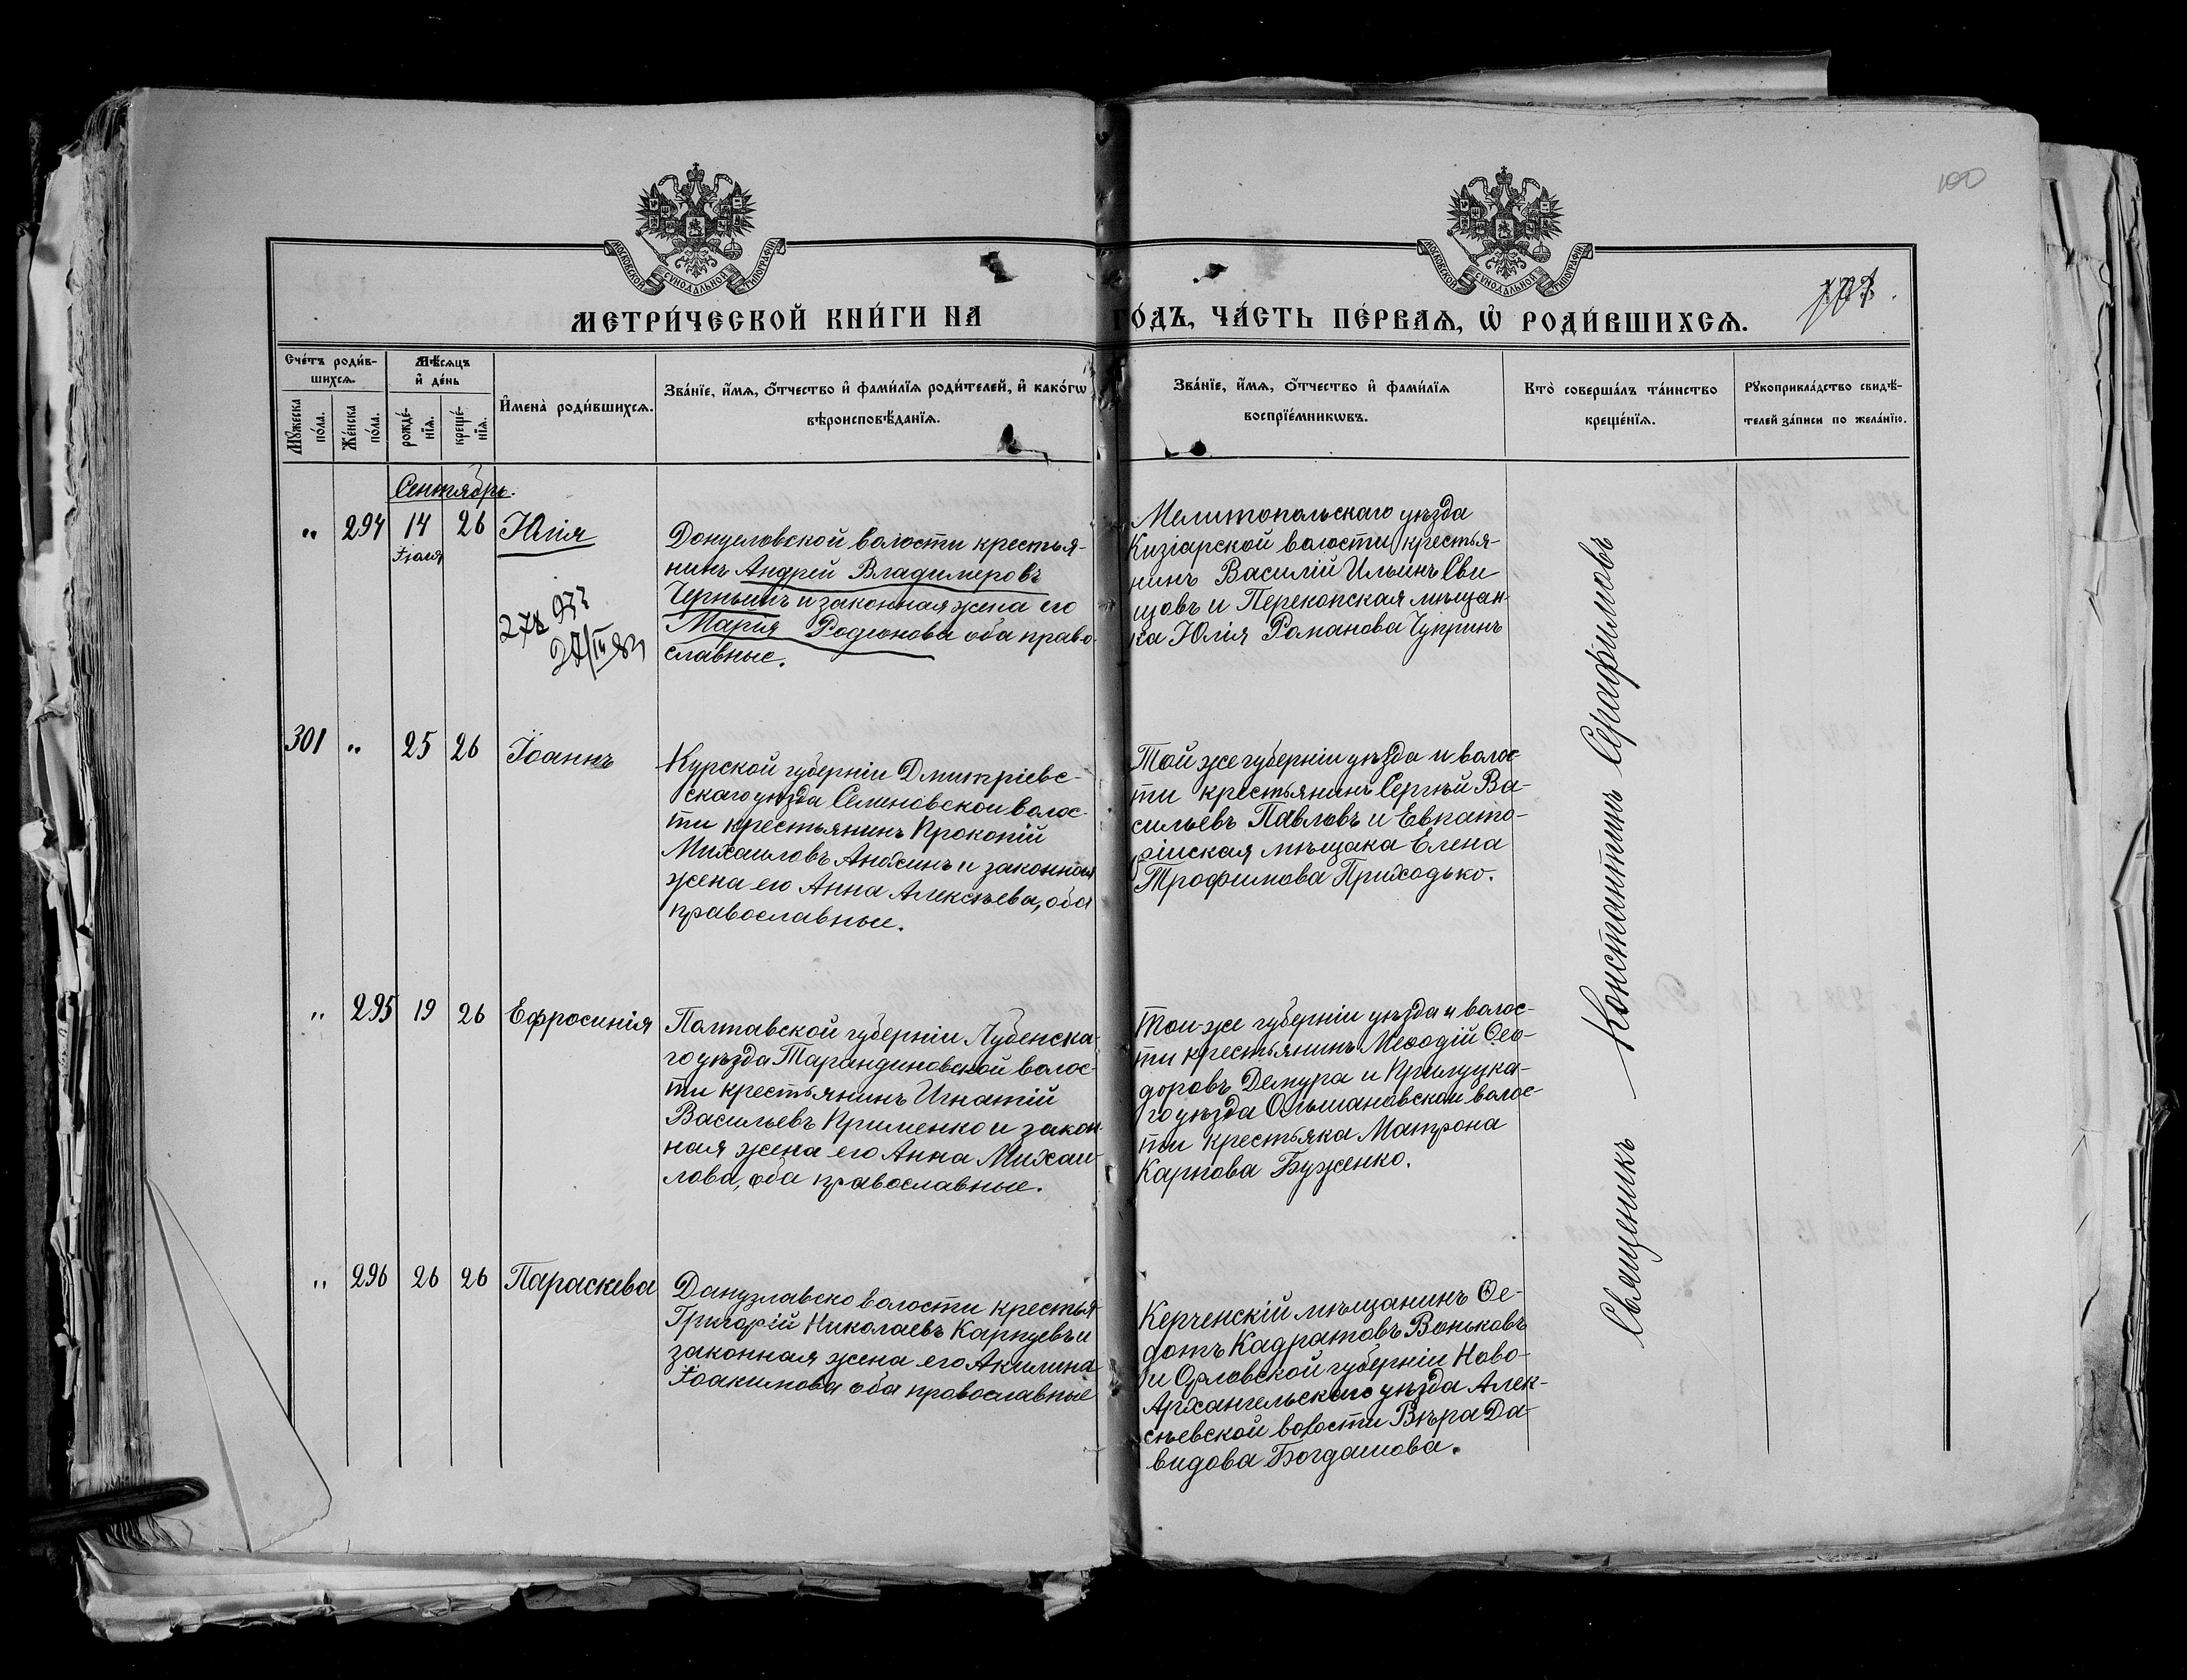 100
МОСКОВСКОЙ СѴНОДАЛЬНОЙ ТИПОГРАФІИ
МОСКОВСКОЙ СѴНОДАЛЬНОЙ ТИПОГРАФІИ
МЕТРИ́ЧЕСКОЙ КНИ́ГИ НА
ГО́ДЪ, ЧА́СТЬ ПЕ́РВАѦ, Ѡ҆ РОДИ́ВШИХСѦ.
Сче́тъ роди́в-
шихсѧ.
Мꙋжеска
по́ла.
Же́нска
по́ла.
Мѣ́сѧцъ
и҆ де́нь
рожде́-
нїѧ.
креще́-
нїѧ.
И҆мена̀ роди́вшихсѧ.
Зва́нїе, и҆́мѧ, ѻ҆́тчество и҆ фами́лїѧ роди́телей, и҆ како́гѡ
вѣроисповѣ́данїѧ.
Зва́нїе, и҆́мѧ, ѻ҆́тчество и҆ фами́лїѧ
воспрїе́мникѡвъ.
Кто̀ соверша́лъ та́инство
креще́нїѧ.
Рꙋкоприкла́дство свидѣ́-
телей за́писи по жела́нїю.
Сентябрь.
" 294 14 26 Юлія
Іюля
Донузловской волости крестья-
нинъ Андрей Владимеровъ
Чернышъ и законная жена его
Марія Родіонова оба право-
славные.
Мелитопольскаго уѣзда
Кизіарской волости крестья-
нинъ Василій Ильинъ Сви
щовъ и Перекопская мѣщан
ка Юлія Романова Чупринъ
301 " 25 26 Іоаннъ
Курской губерніи Дмитріевс-
скаго уѣзда Селиновской волос-
ти крестьянинъ Прокопій
Михаиловъ Анохинъ и законная
жена его Анна Алексѣева, оба
православные.
Той же губерніи уѣзда и волос-
ти крестьянинъ Сергѣй Ва-
сильевъ Павловъ и Евпато-
рійская мѣщака Елена
Трофимова Приходько.
" 295 19 26 Ефросинія
Полтавской губерніи Лубенска-
го уѣзда Тарандиновской волос-
ти крестьянинъ Игнатій
Васильевъ Крименко и закон-
ная жена его Анна Михаи-
лова, оба православные.
Той-же губерніи уѣзда и волос-
ти крестьянинъ Меѳодій Ѳео-
доровъ Демура и Прилука-
го уѣзда Ольшановской волос-
ти крестьяка Матрона
Карпова Буженко.
" 296 26 26 Параскева
Данузлавско волости крестья
Григорій Николаевъ Карпуевъ и
законная жена его Акилина
Іоакимова оба православные
Керченскій мѣщанинъ Ѳе-
дотъ Кадратовъ Воньковъ
и Орловской губерніи Ново-
Архангельскаго уѣзда Алек-
сѣевской волости Вѣра Да-
видова Богдашова.
Священикъ Константинъ Серафимовъ